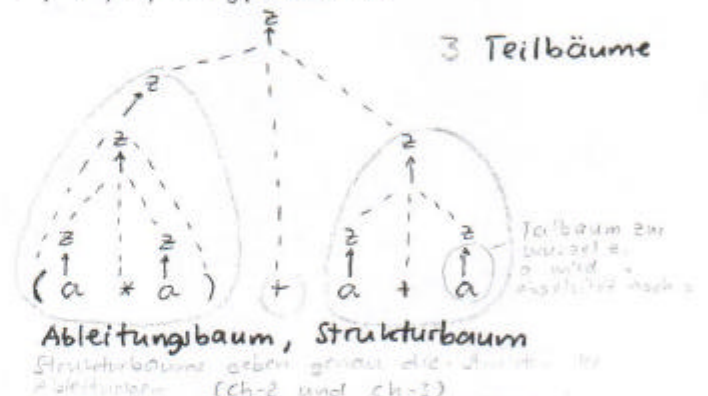 z
3 Teilbäume
z
z z
z z z z
( a * a ) + a + a
Teilbaum zur
Wurzel z,
a wird
Ableitungsbaum, Strukturbaum
Strukturbäume geben genau die
(Ch-2 und Ch-3)